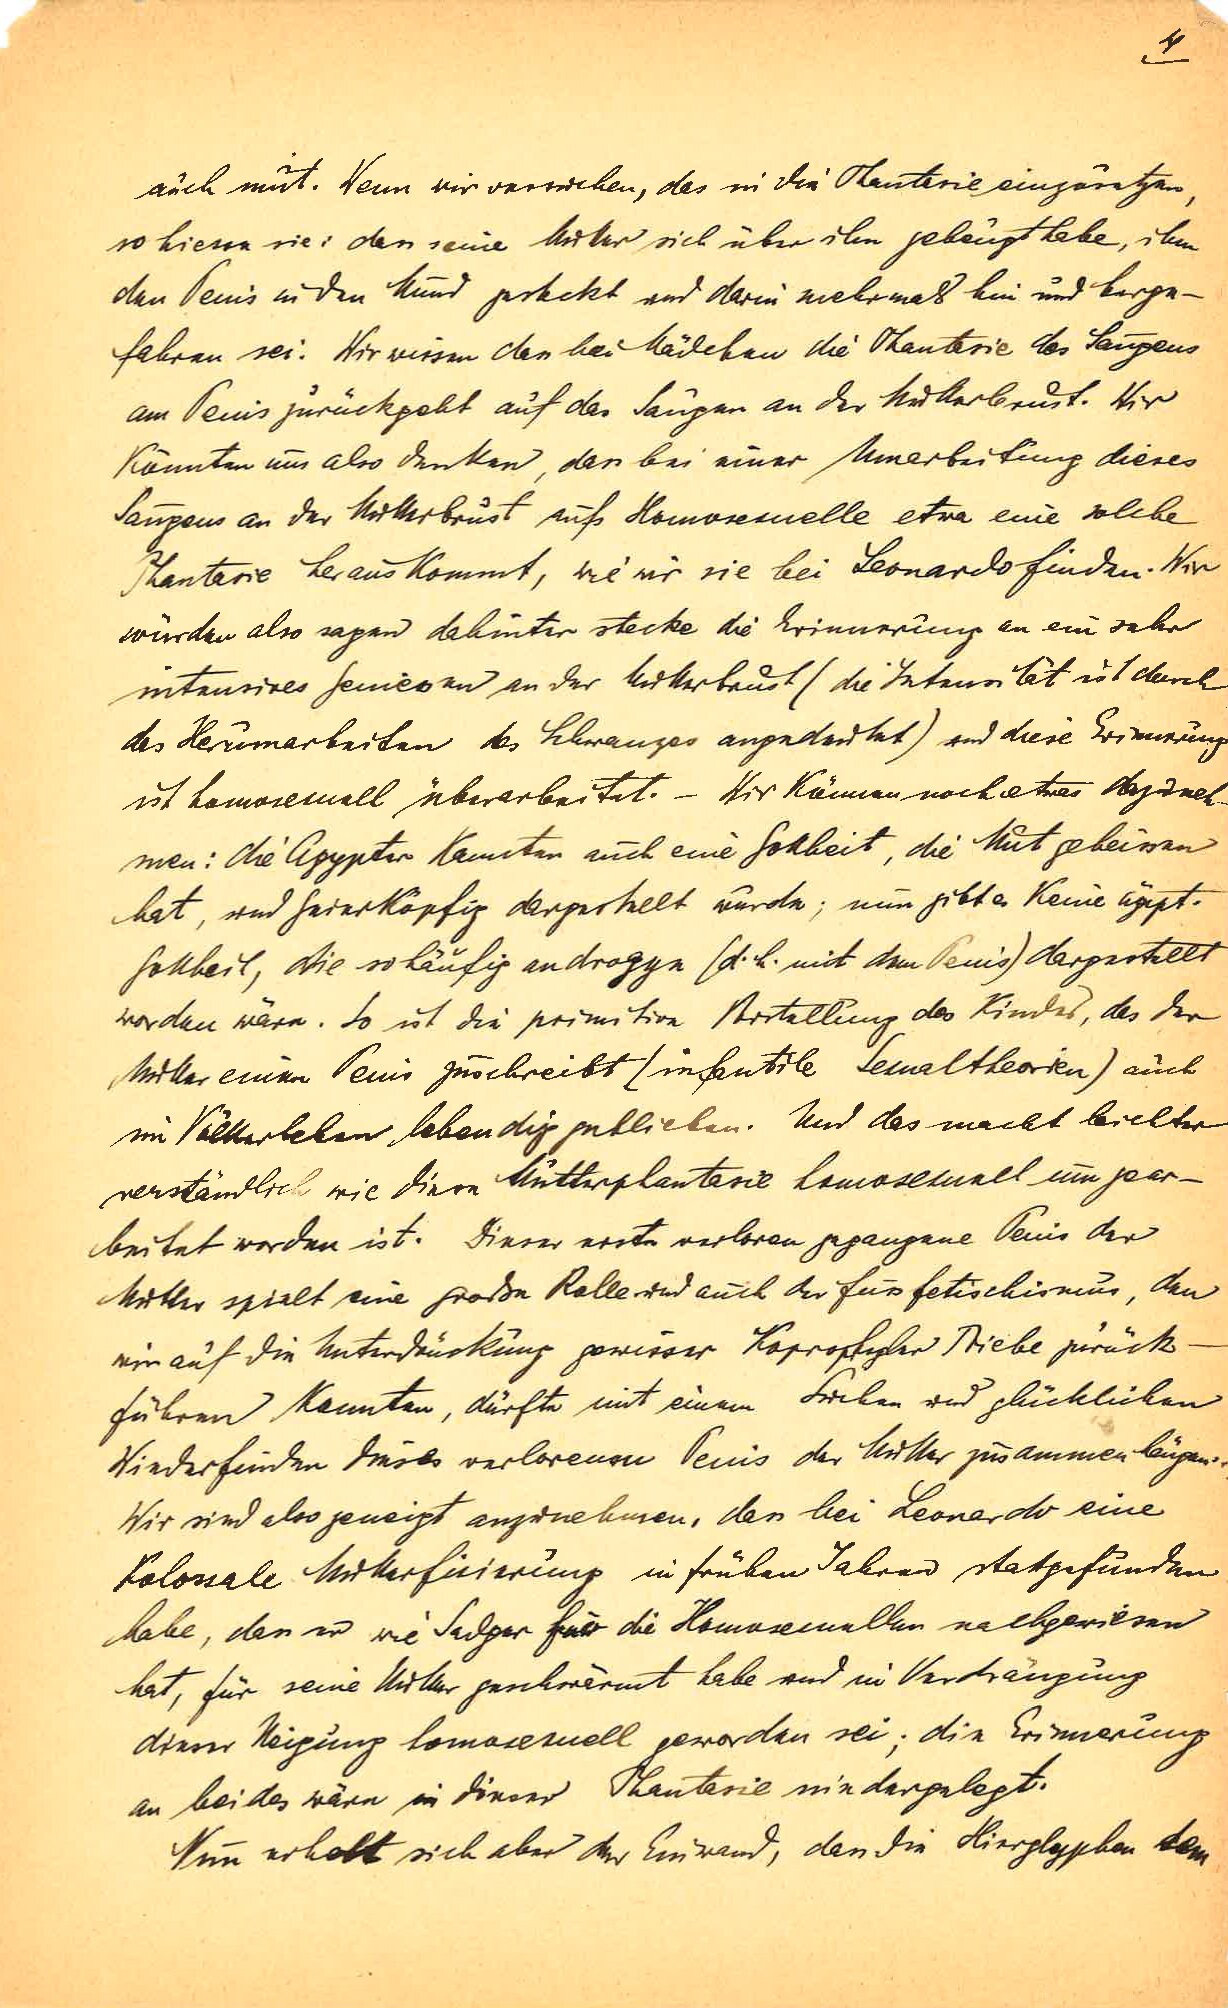 4
auch mut. Wenn wir versuchen, das in die Phantasie einzusetzen,
so hiesse sie: dass seine Mutter sich über ihn gebeugt habe, ihm
den Penis in den Mund gesteckt und darin mehrmals hin und herge-
fahren sei. Wir wissen dass bei Mädchen die Phantasie des Saugens
am Penis zurückgeht auf das Saugen an der Mutterbrust. Wir
könnten uns also denken, dass bei einer Umarbeitung dieses
Saugens an der Mutterbrust aufs Homosexuelle etwa eine solche
Phantasie herauskommt, wie wir sie bei Leonardo finden. Wir
würden also sagen dahinter stecke die Erinnerung an ein sehr
intensives Geniessen an der Mutterbrust (die Intensität ist durch
das Herumarbeiten des Schwanzes angedeutet) und diese Erinnerung
ist homosexuell überarbeitet. – Wir können noch etwas dazuneh-
men: die Ägypter kannten auch eine Gottheit, die Mut geheissen
hat, und geierköpfig dargestellt wurde; nun gibt es keine ägypt.
Gottheit, die so häufig androgyn (d. h. mit dem Penis) dargestellt
worden wäre. So ist die primitive Vorstellung des Kindes, das der
Mutter einen Penis zuschreibt (infantile Sexualtheorien) auch
im Völkerleben lebendig geblieben. Und das macht leichter
verständlich wie diese Mutterphantasie homosexuell umgear-
beitet worden ist. Dieser erste verloren gegangene Penis der
Mutter spielt eine grosse Rolle und auch der Fussfetischismus, den
wir auf die Unterdrückung gewisser koprophyler Triebe zurück-
führen konnten, dürfte mit einem Suchen und glücklichen
Wiederfinden dieses verlorenen Penis der Mutter zusammenhängen.
Wir sind also geneigt anzunehmen, dass bei Leonardo eine
kolossale Mutterfixierung in frühen Jahren stattgefunden
habe, dass er wie Sadger für die Homosexuellen nachgewiesen
hat, für seine Mutter geschwärmt habe und in Verdrängung
dieser Neigung homosexuell geworden sei; die Erinnerung
an beides wäre in dieser Phantasie niedergelegt.
Nun erhebt sich aber der Einwand, dass die Hieroglyphen dem